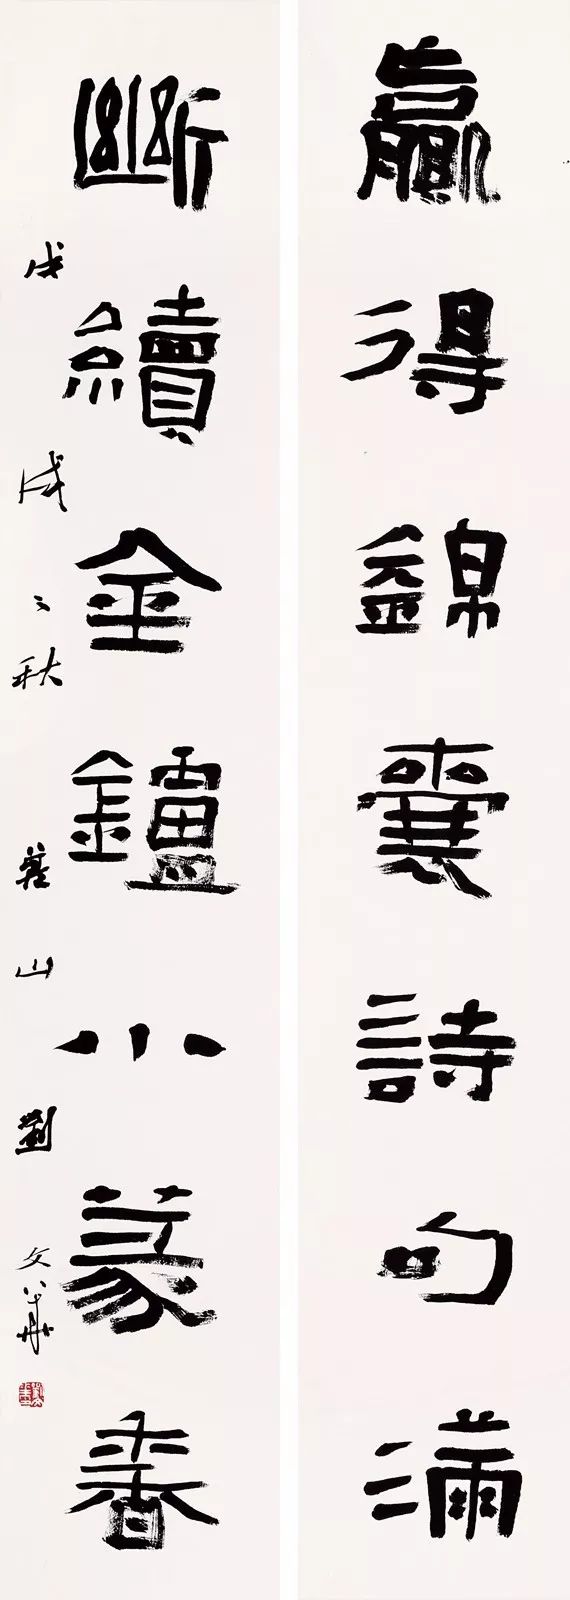 贏得錦囊詩句滿
斷續金鑪小篆香
戊戌之秋 萇山 劉文華